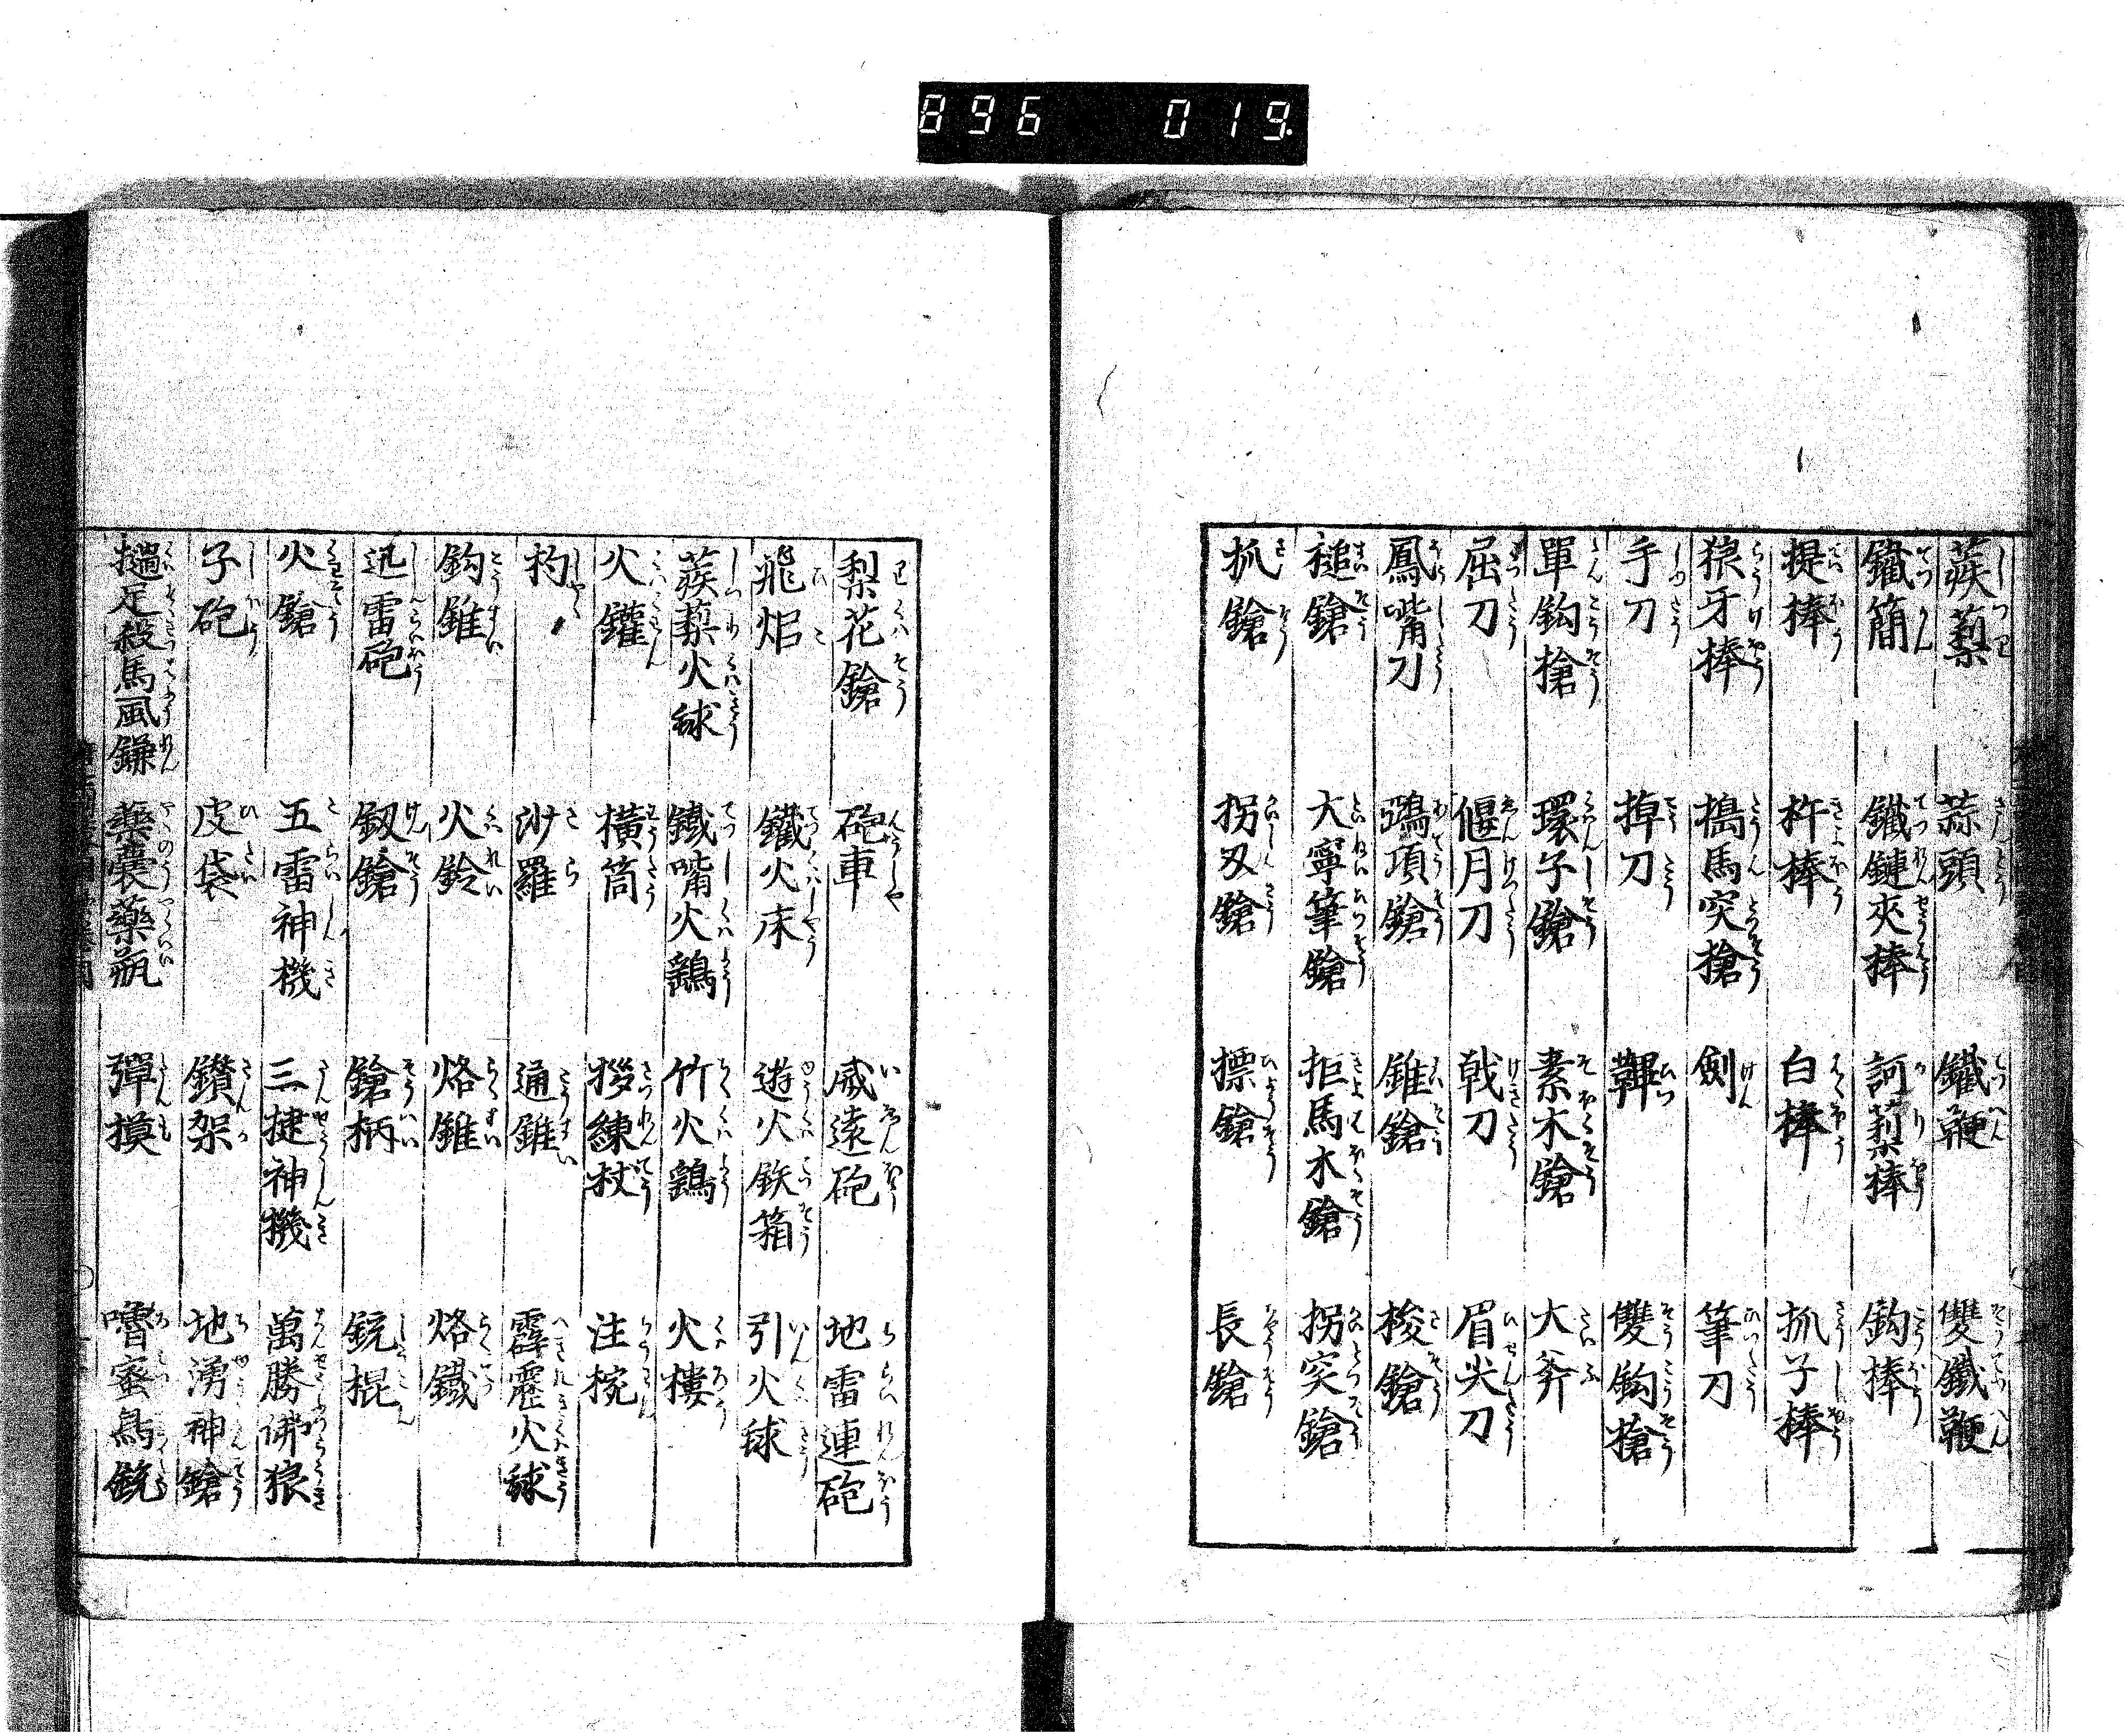 896 019
蒺䔧 蒜頭 鐵鞭 雙鐵鞭
鐵簡 鐵鏈夾棒 訶䔧棒 鈎棒
提棒 杵棒 白棒 抓子棒
狼牙棒 搗馬突槍 劍 筆刀
手刀 掉刀 鞸 雙鈎槍
單鈎槍 環子鎗 素木鎗 大斧
屈刀 偃月刀 戟刀 眉尖刀
鳳嘴刀 鵶項鎗 錐鎗 梭鎗
槌鎗 大寧筆鎗 拒馬木鎗 拐突鎗
抓鎗 拐刄鎗 摽鎗 長鎗
梨花鎗 砲車 威遠砲 地雷連砲
飛炬 鐵火床 遊火鉄箱 引火毬
蒺䔧火毬 鐵嘴火鷂 竹火鷂 火樓
火鑵 橫筒 拶練杖 注椀
杓 沙羅 通錐 霹靂火毬
鈎錐 火鈴 烙錐 烙鐵
迅雷砲 釼鎗 鎗柄 銃棍
火鎗 五雷神機 三捷神機 萬勝佛狼
子砲 皮袋 鑚架 地湧神鎗
足殺馬風鎌 藥囊藥瓶 彈摸 嚕蜜鳥銃